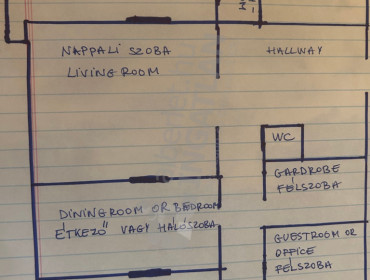 NAPPALI SZOBA
LIVING ROOM
HALLWAY
WC
GARDROBE
FÉLSZOBA
DININGROOM OR BEDROOM
ÉTKEZŐ VAGY HÁLÓSZOBA
GUESTROOM OR
OFFICE
FÉLSZOBA